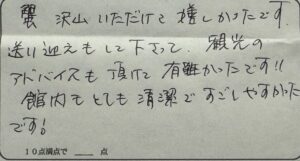 沢山いただけて嬉しかったです。
送り迎えもして下さって、観光の
アドバイスも頂けて有難かったです!!
館内もとても清潔ですごしやすかった
です!
10点満点で ___ 点